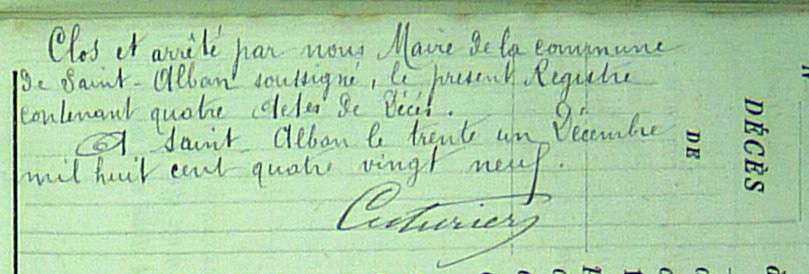 Clos et arrêté par nous Maire de la commune
de Saint-Alban soussigné, le present Registre
contenant quatre Actes de Décès.
A Saint Alban le trente un Décembre
mil huit cent quatre vingt neuf.
Cuturier
DE
DÉCÈS